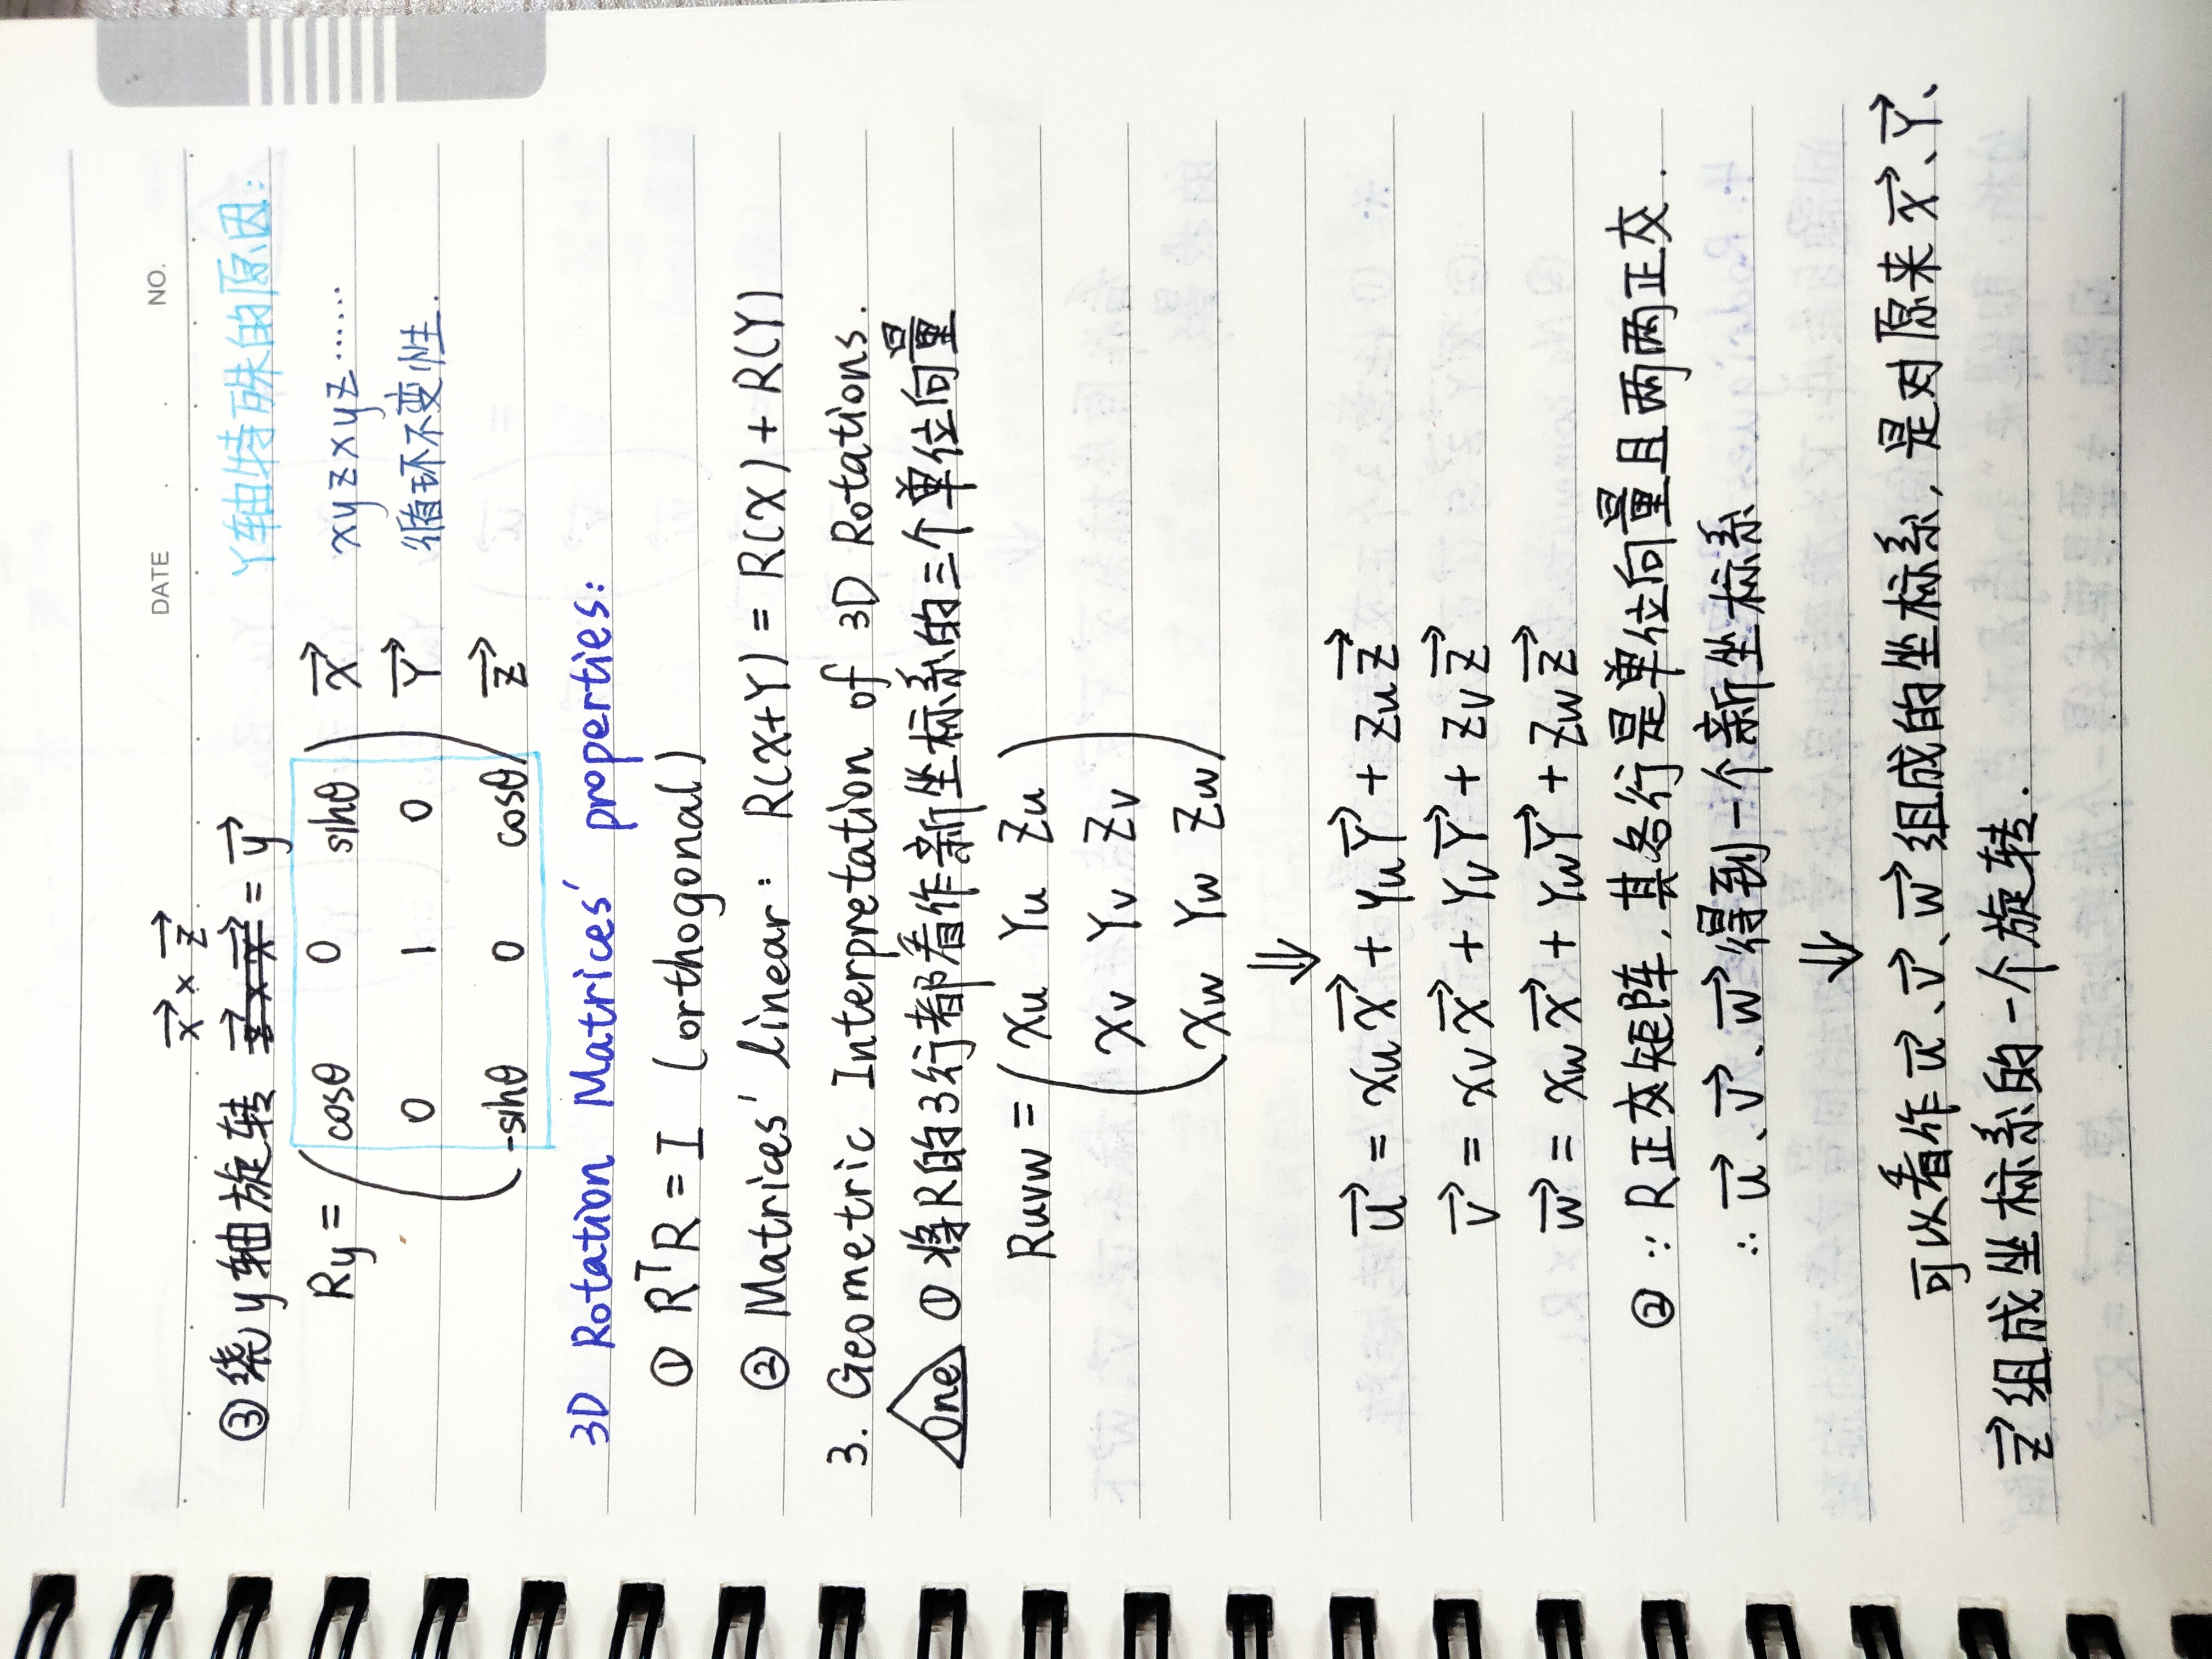 DATE . . NO.
x⃗ × z⃗
③绕y轴旋转 ~~z⃗ × x⃗~~ = y⃗ Y轴特殊的原因:
Ry = ( cosθ 0 sinθ ) X⃗ xyzxyz……
0 1 0 Y⃗ 循环不变性.
-sinθ 0 cosθ Z⃗
3D Rotation Matrices' properties:
① RᵀR = I (orthogonal)
② Matrices' linear: R(X+Y) = R(X) + R(Y)
3. Geometric Interpretation of 3D Rotations.
One ① 将R的3行都看作新坐标系的三个单位向量
Ruvw = ( Xu Yu Zu )
Xv Yv Zv
Xw Yw Zw
⇓
u⃗ = xu X⃗ + Yu Y⃗ + Zu Z⃗
v⃗ = xv X⃗ + Yv Y⃗ + Zv Z⃗
w⃗ = xw X⃗ + Yw Y⃗ + Zw Z⃗
② ∵ R正交矩阵,其各行是单位向量且两两正交.
∴ u⃗、v⃗、w⃗ 得到一个新坐标系
⇓
可以看作 u⃗、v⃗、w⃗ 组成的坐标系,是对原来 X⃗、Y⃗、
Z⃗ 组成坐标系的一个旋转.